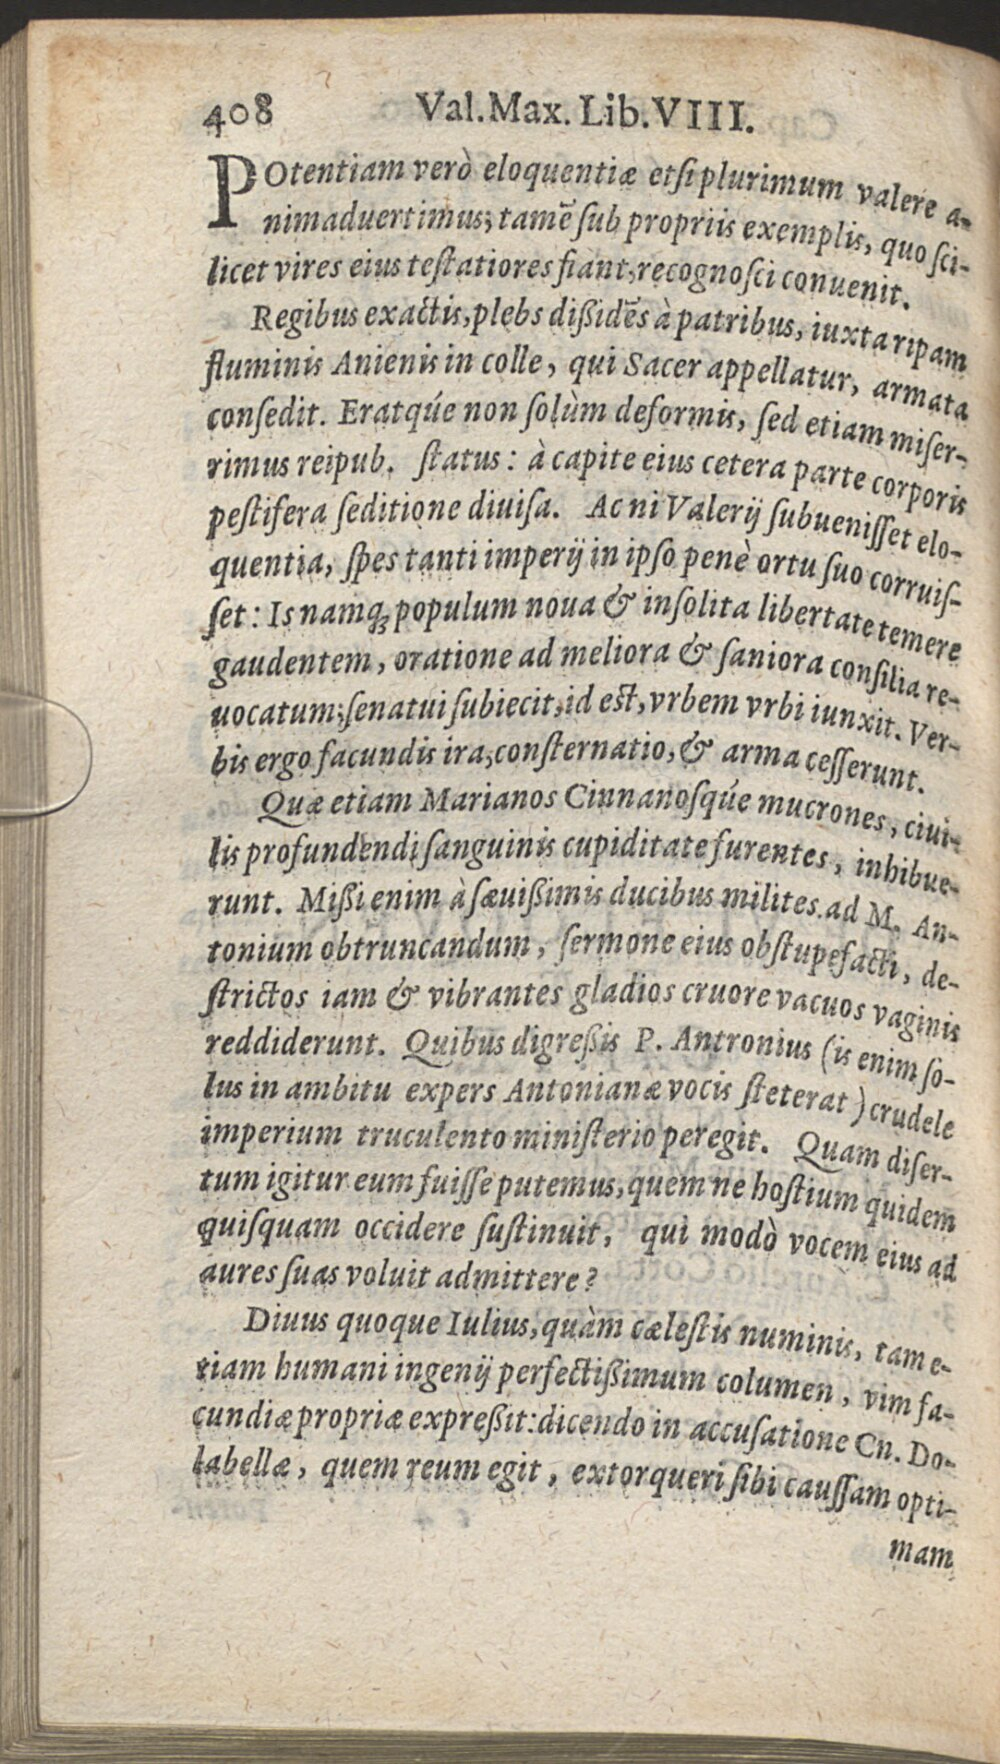 408 Val. Max. Lib. VIII.
POtentiam verò eloquentiæ etsi plurimum valere a-
nimaduertimus; tamē sub propriis exemplis, quo sci-
licet vires eius testatiores fiant, recognosci conuenit.
Regibus exactis, plebs dißidēs à patribus, iuxta ripam
fluminis Anienis in colle, qui Sacer appellatur, armata
consedit. Eratqúe non solùm deformis, sed etiam miser-
rimus reipub. status: à capite eius cetera parte corporis
pestifera seditione diuisa. Ac ni Valerij subuenisset elo-
quentia, spes tanti imperij in ipso penè ortu suo corruis-
set: Is namq́; populum noua & insolita libertate temere
gaudentem, oratione ad meliora & saniora consilia re-
uocatum; senatui subiecit, id est, vrbem vrbi iunxit. Ver-
bis ergo facundis ira, consternatio, & arma cesserunt.
Quæ etiam Marianos Cinnanosqúe mucrones, ciui-
lis profundendi sanguinis cupiditate furentes, inhibue-
runt. Mißi enim à sæuißimis ducibus milites ad M. An-
tonium obtruncandum, sermone eius obstupefacti, de-
strictos iam & vibrantes gladios cruore vacuos vaginis
reddiderunt. Quibus digreßis P. Antronius (is enim so-
lus in ambitu expers Antonianæ vocis steterat) crudele
imperium truculento ministerio peregit. Quam diser-
tum igitur eum fuisse putemus, quem ne hostium quidem
quisquam occidere sustinuit, qui modò vocem eius ad
aures suas voluit admittere?
Diuus quoque Iulius, quàm cælestis numinis, tam e-
tiam humani ingenij perfectißimum columen, vim fa-
cundiæ propriæ expreßit: dicendo in accusatione Cn. Do-
labellæ, quem reum egit, extorqueri sibi caussam opti-
mam